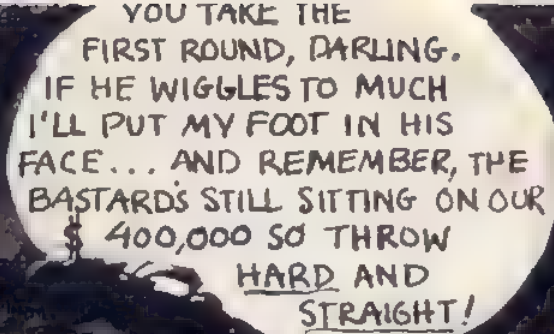 YOU TAKE THE
FIRST ROUND, DARLING.
IF HE WIGGLES TO MUCH
I'LL PUT MY FOOT IN HIS
FACE... AND REMEMBER, THE
BASTARD'S STILL SITTING ON OUR
$ 400,000 SO THROW
HARD AND
STRAIGHT!